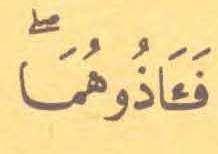 فَـَٔاذُوهُمَاۖ